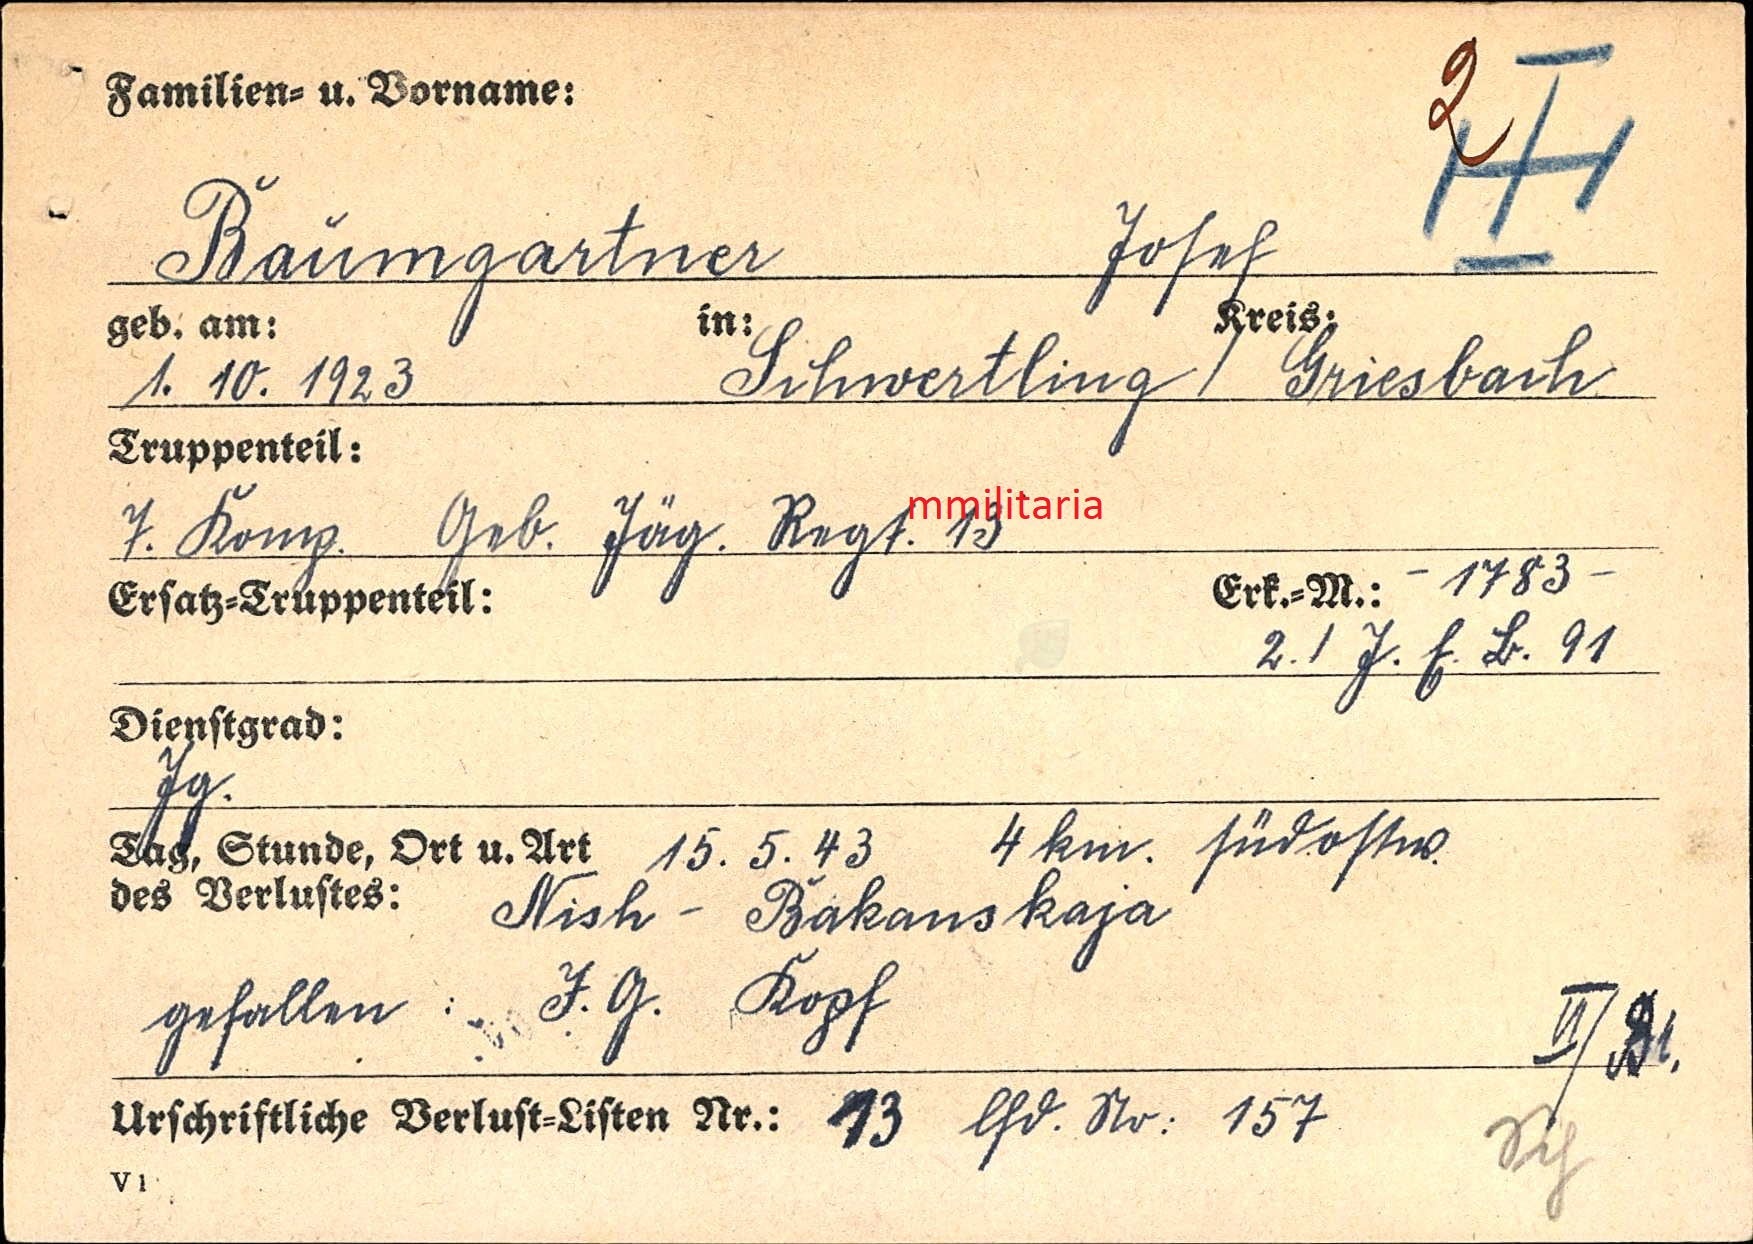 Familien- u. Vorname:
2
Baumgartner Josef
geb. am: in: Kreis:
1. 10. 1923 Schwertling / Griesbach
Truppenteil:
mmilitaria
7. Komp. Geb. Jäg. Regt. 13
Ersatz-Truppenteil: Erk.-M.: - 1783 -
2. / J. E. B. 91
Dienstgrad:
Jg.
Tag, Stunde, Ort u. Art 15. 5. 43 4 km. südostw.
des Verlustes: Nish - Bakanskaja
gefallen : I. G. Kopf
VI/
Urschriftliche Verlust-Listen Nr.: 13 lfd. No: 157
V 1